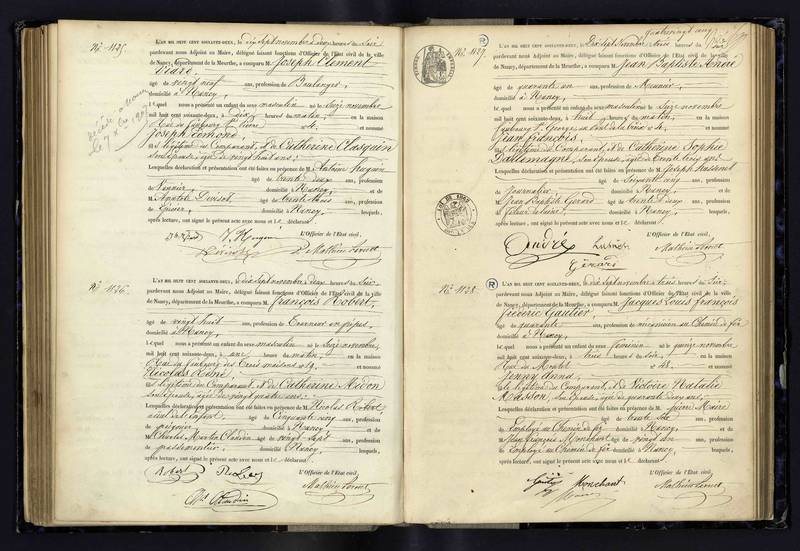 N° 1125.
L'AN MIL HUIT CENT SOIXANTE-DEUX, le dix sept novembre à deux heures du soir
pardevant nous Adjoint au Maire, délégué faisant fonctions d'Officier de l'État civil de la ville
de Nancy, département de la Meurthe, a comparu M. Joseph Clément
Viard,
âgé de vingt neuf ans, profession de Boulanger,
domicilié à Nancy,
lequel nous a présenté un enfant de sexe masculin né le seize novembre
mil huit cent soixante-deux, à dix heures du matin, en la maison
Rue du faubourg St. Pierre n° 4. et nommé
Joseph Edmond.
fils légitime du Comparant, & de Catherine Clasquin
son épouse, âgée de vingt huit ans;
Lesquelles déclaration et présentation ont été faites en présence de M. Antoine Huguin
âgé de trente deux ans, profession
de Vannier, domicilié à Nancy, et de
M. Anatole Denisot, âgé de trente trois ans, profession
de Épicier, domicilié à Nancy, lesquels,
après lecture, ont signé le présent acte avec nous et le déclarant
L'Officier de l'État civil,
N° 1126.
L'AN MIL HUIT CENT SOIXANTE-DEUX, le dix sept novembre, deux heures du soir
pardevant nous Adjoint au Maire, délégué faisant fonctions d'Officier de l'État civil de la ville
de Nancy, département de la Meurthe, a comparu M. François Robert,
âgé de vingt huit ans, profession de Tourneur en pipes,
domicilié à Nancy,
lequel nous a présenté un enfant de sexe masculin né le seize novembre
mil huit cent soixante-deux, à une heure du matin, en la maison
Rue du faubourg des Trois maisons n° 59. et nommé
Nicolas René.
fils légitime du Comparant, & de Catherine Aidon
son épouse, âgée de vingt quatre ans;
Lesquelles déclaration et présentation ont été faites en présence de M. Nicolas Robert
aïeul de l'enfant, âgé de Cinquante cinq ans, profession
domicilié à Nancy, et de
M. Charles Martin Claudin âgé de vingt sept ans, profession
de passementier, domicilié à Nancy, lesquels,
après lecture, ont signé le présent acte avec nous et le déclarant
Robert
L'Officier de l'État civil,
Quatre vingt cinq
N° 1127.
L'AN MIL HUIT CENT SOIXANTE-DEUX, le Dix sept novembre, trois heures du soir
pardevant nous Adjoint au Maire, délégué faisant fonctions d'Officier de l'État civil de la ville
de Nancy, département de la Meurthe, a comparu M. Jean Baptiste André
âgé de quarante un ans, profession de Menuisier,
domicilié à Nancy,
lequel nous a présenté un enfant de sexe masculin né le seize novembre
mil huit cent soixante-deux, à huit heures du matin, en la maison
n° 4. et nommé
Jean François,
fils légitime du Comparant, & de Catherine Sophie
Dallemagne, son épouse, âgée de trente trois ans;
Lesquelles déclaration et présentation ont été faites en présence de M. Joseph
âgé de soixante cinq ans, profession
de Journalier, domicilié à Nancy, et de
M. Jean Baptiste Gérard âgé de trente deux ans, profession
domicilié à Nancy, lesquels,
après lecture, ont signé le présent acte avec nous et le déclarant
L'Officier de l'État civil,
André
Gérard
N° 1128.
L'AN MIL HUIT CENT SOIXANTE-DEUX, le dix sept novembre trois heures du soir
pardevant nous Adjoint au Maire, délégué faisant fonctions d'Officier de l'État civil de la ville
de Nancy, département de la Meurthe, a comparu M. Jacques Louis François
Frédéric Gautier,
âgé de quarante ans, profession de mécanicien au Chemin de fer
domicilié à Nancy,
lequel nous a présenté un enfant de sexe féminin né le quinze novembre
mil huit cent soixante-deux, à trois heures du soir, en la maison
Rue du Montet n° 48. et nommé
Jenny Anna,
fille légitime du Comparant, & de Victoire Natalie
Masson, son épouse, âgée de quarante deux ans;
Lesquelles déclaration et présentation ont été faites en présence de M. Pierre
ans, profession
de Employé au Chemin de fer domicilié à Nancy, et de
M. Jean François Monchant âgé de vingt un ans, profession
de Employé au Chemin de fer domicilié à Nancy, lesquels,
après lecture, ont signé le présent acte avec nous et le déclarant
L'Officier de l'État civil,
Monchant